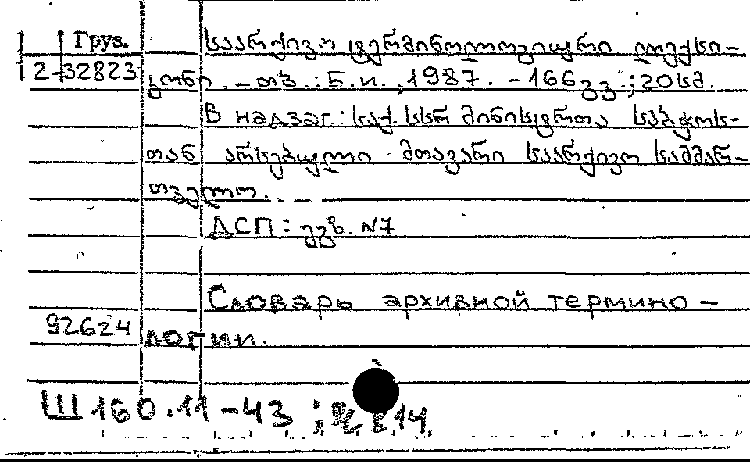 Груз.
2-32823
საარქივო ტერმინოლოგიური ლექსი-
კონი. – თბ.: Б.и., 1987. - 166გვ.; 20სმ.
В надзаг.: საქ. სსრ მინისტრთა საბჭოს-
თან არსებული მთავარი საარქივო სამმარ-
თველო.
ДСП: ეგზ. N7
Словарь архивной термино-
92624
логии.
Ш 160.11-43